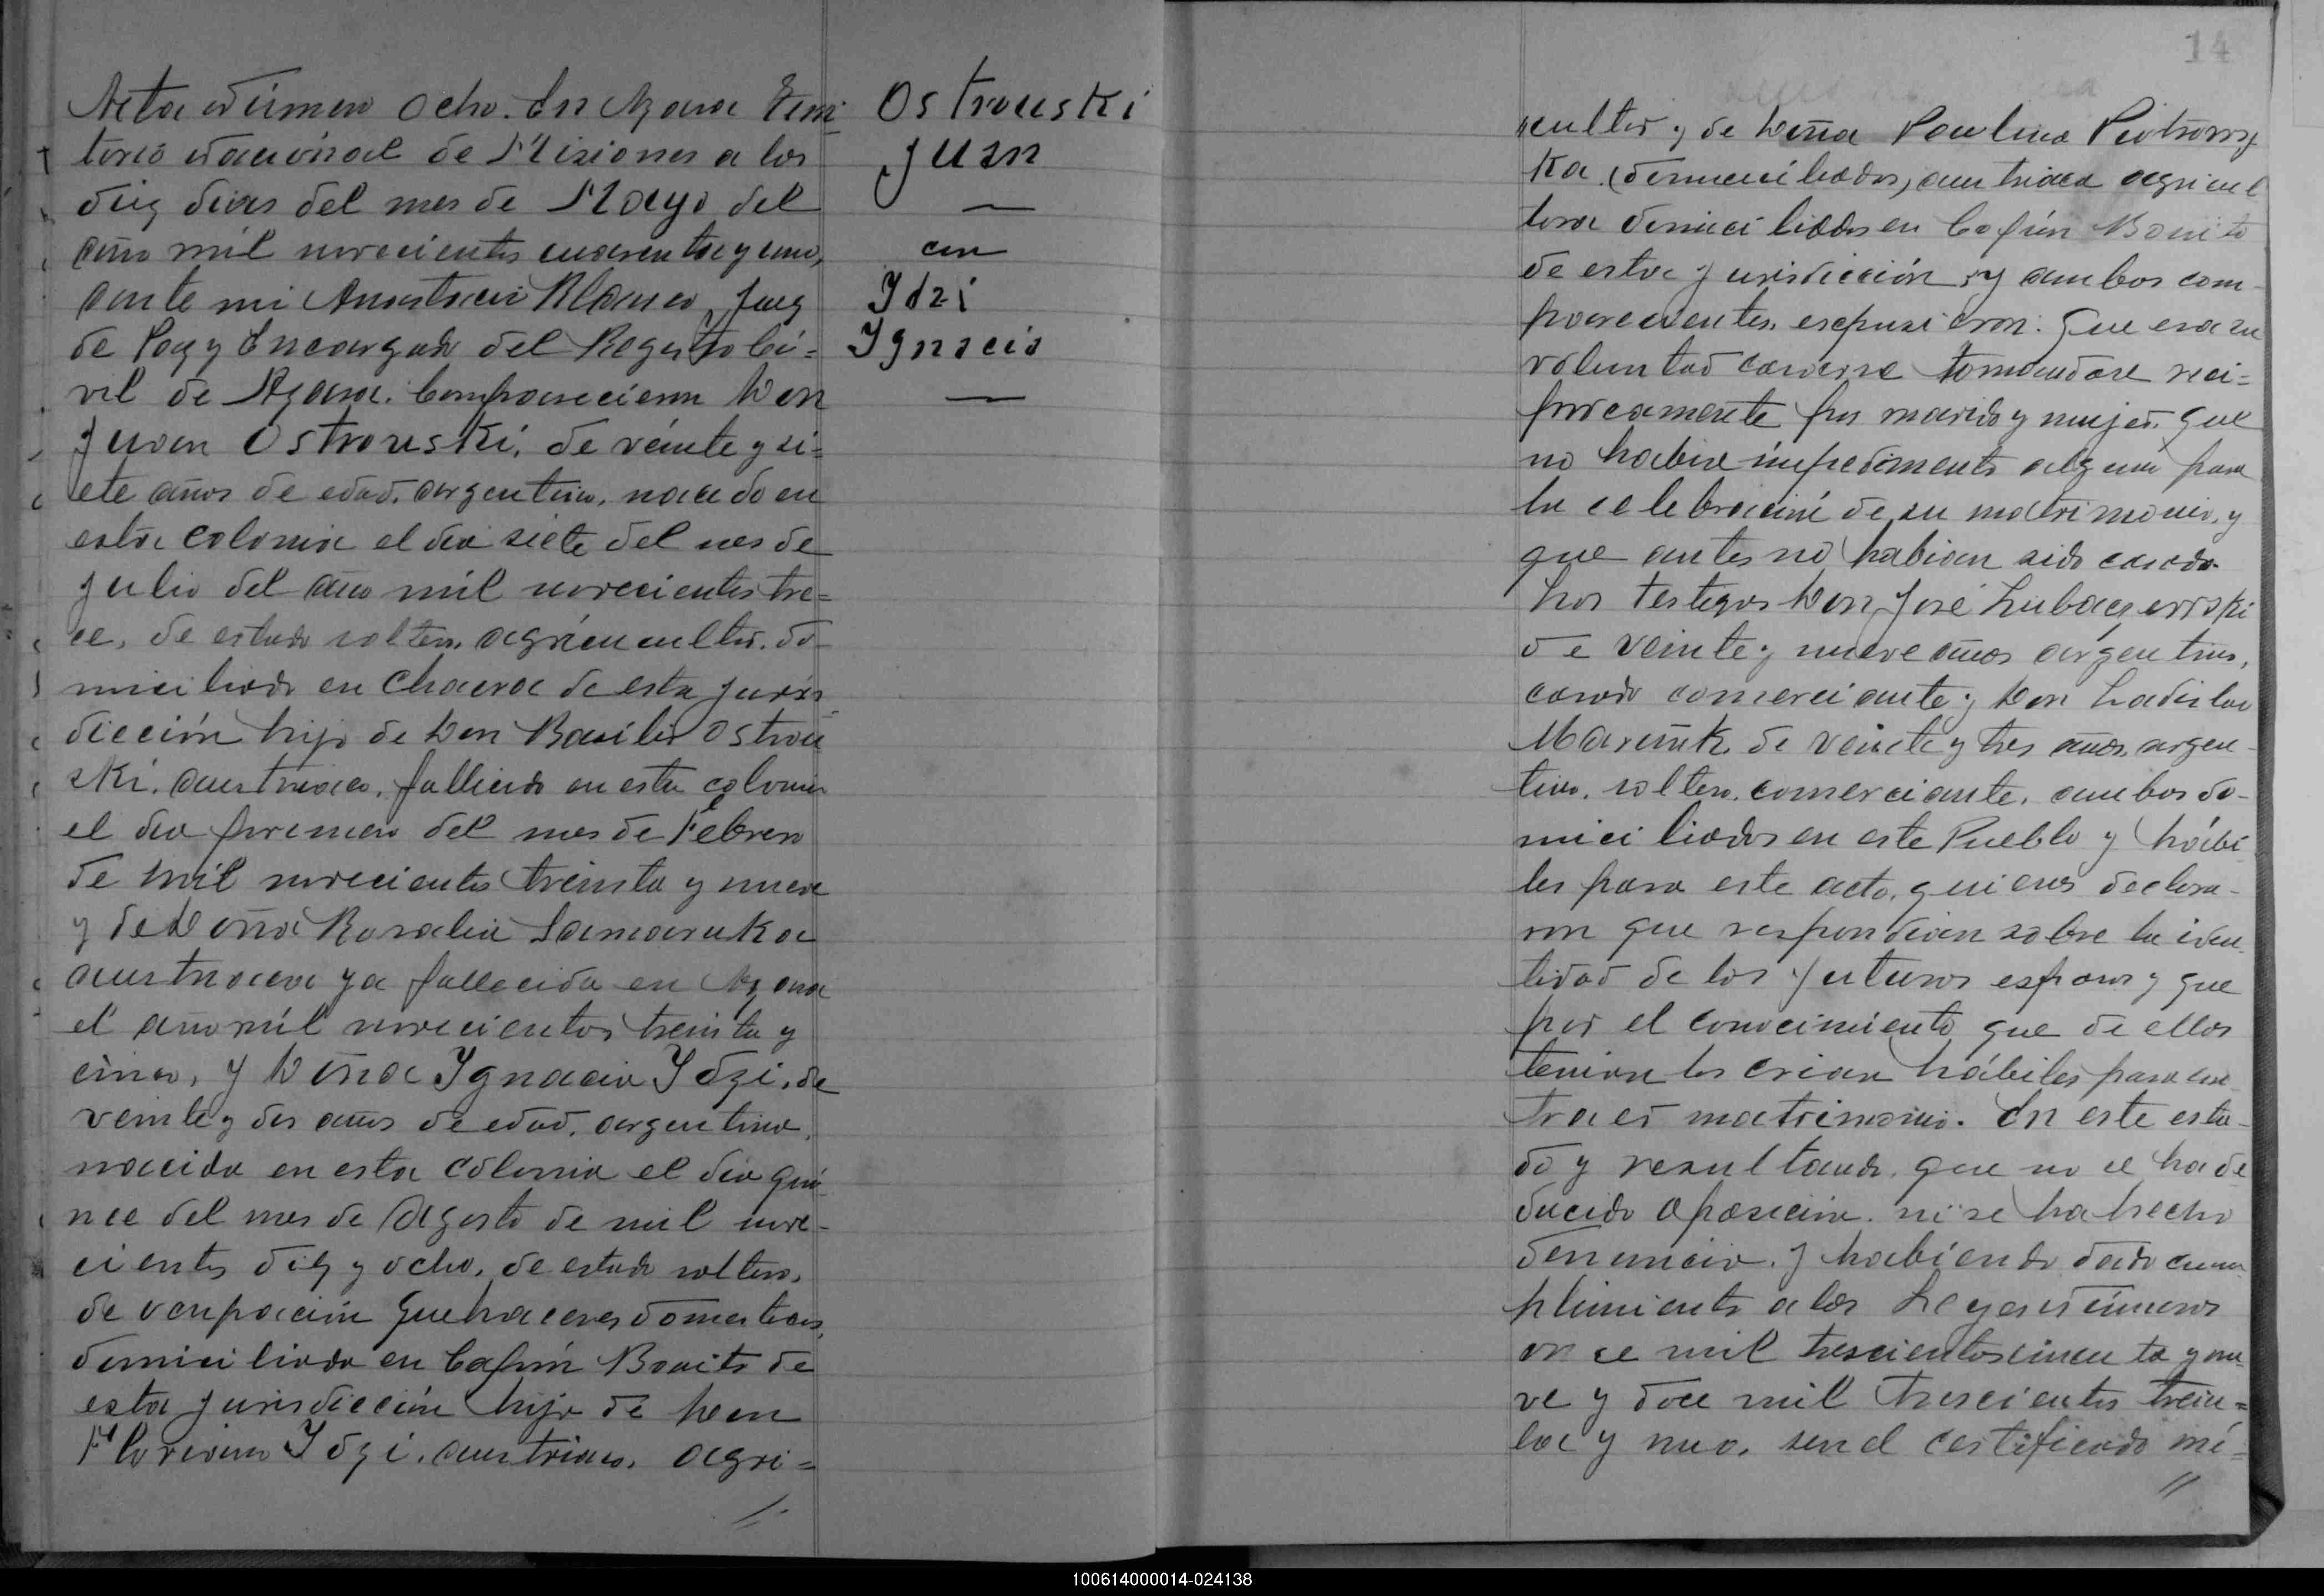 Acta número ocho. En Azara Terri
torio nacional de Misiones a los
diez dias del mes de Mayo del
año mil novecientos cuarenta y uno,
ante mi Anastacio Blanco, Juez
de Paz y Encargado del Registro Ci=
vil de Azara. Comparecieron Don
Juan Ostrouski, de veinte y si=
ete años de edad, argentino, nacido en
esta colonia el dia siete del mes de
Julio del año mil novecientos tre=
ce, de estado soltero, agricultor, do-
miciliado en Chacra de esta juris
dicción hijo de Don Basilio Ostrou
ski, austriaco, fallecido en esta colonia
el dia primero del mes de Febrero
de mil novecientos treinta y nueve
y de Doña Rosalia Samaruka
austriaca ya fallecida en Azara
el año mil novecientos treinta y
cinco, y Doña Ignacia Idzi, de
veinte y dos años de edad, argentina,
nacida en esta colonia el dia quin
nce del mes de Agosto de mil nove-
cientos diez y ocho, de estado soltera,
de ocupación quehaceres domesticos,
domiciliada en Capón Bonito de
esta jurisdicción hija de Don
Floriano Idzi, austriaco, agri=
Ostrouski
Juan
—
con
Idzi
Ignacia
—
14
"cultor y de Doña Paulina Piotrows
ka. (domiciliados), austriaca agricul
tora domiciliados en Capón Bonito
de esta jurisdicción, y ambos com-
parecientes, expusieron: Que era su
voluntad casarse tomandose reci=
procamente por marido y mujer, que
no habia impedimento alguno para
la celebración de su matrimonio, y
que antes no habian sido casado.
Los testigos Don José Lubaczewski
de veinte y nueve años argentino,
casado comerciante y Don Ladislao
Mareñuk de veinte y tres años, argen-
tino, soltero, comerciante, ambos do-
miciliados en este Pueblo y hábi
les para este acto, quienes declara-
ron que respondian sobre la iden
tidad de los futuros esposos y que
por el conocimiento que de ellos
tenian los creian hábiles para con
traer matrimonio. En este esta-
do y resultando, que no se ha de
ducido oposición, ni se ha hecho
denuncia, y habiendo dado cum
plimiento a las Leyes números
once mil trescientos cincuenta y nue
ve y doce mil trescientos trein=
ta y uno, sen el certificado mé=
100614000014-024138